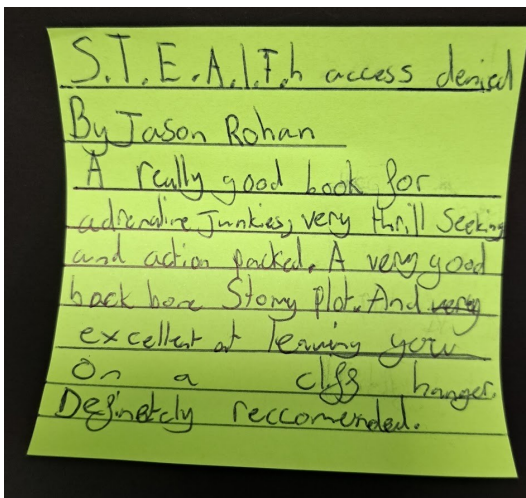 S.T.E.A.L.T.h access denied
By Jason Rohan
A really good book for
adrenaline Junkies, very thrill seeking
and action packed. A very good
back bone Stomy plot. And very
excellent at leaving you
On a cliff hanger.
Definetely reccomended.